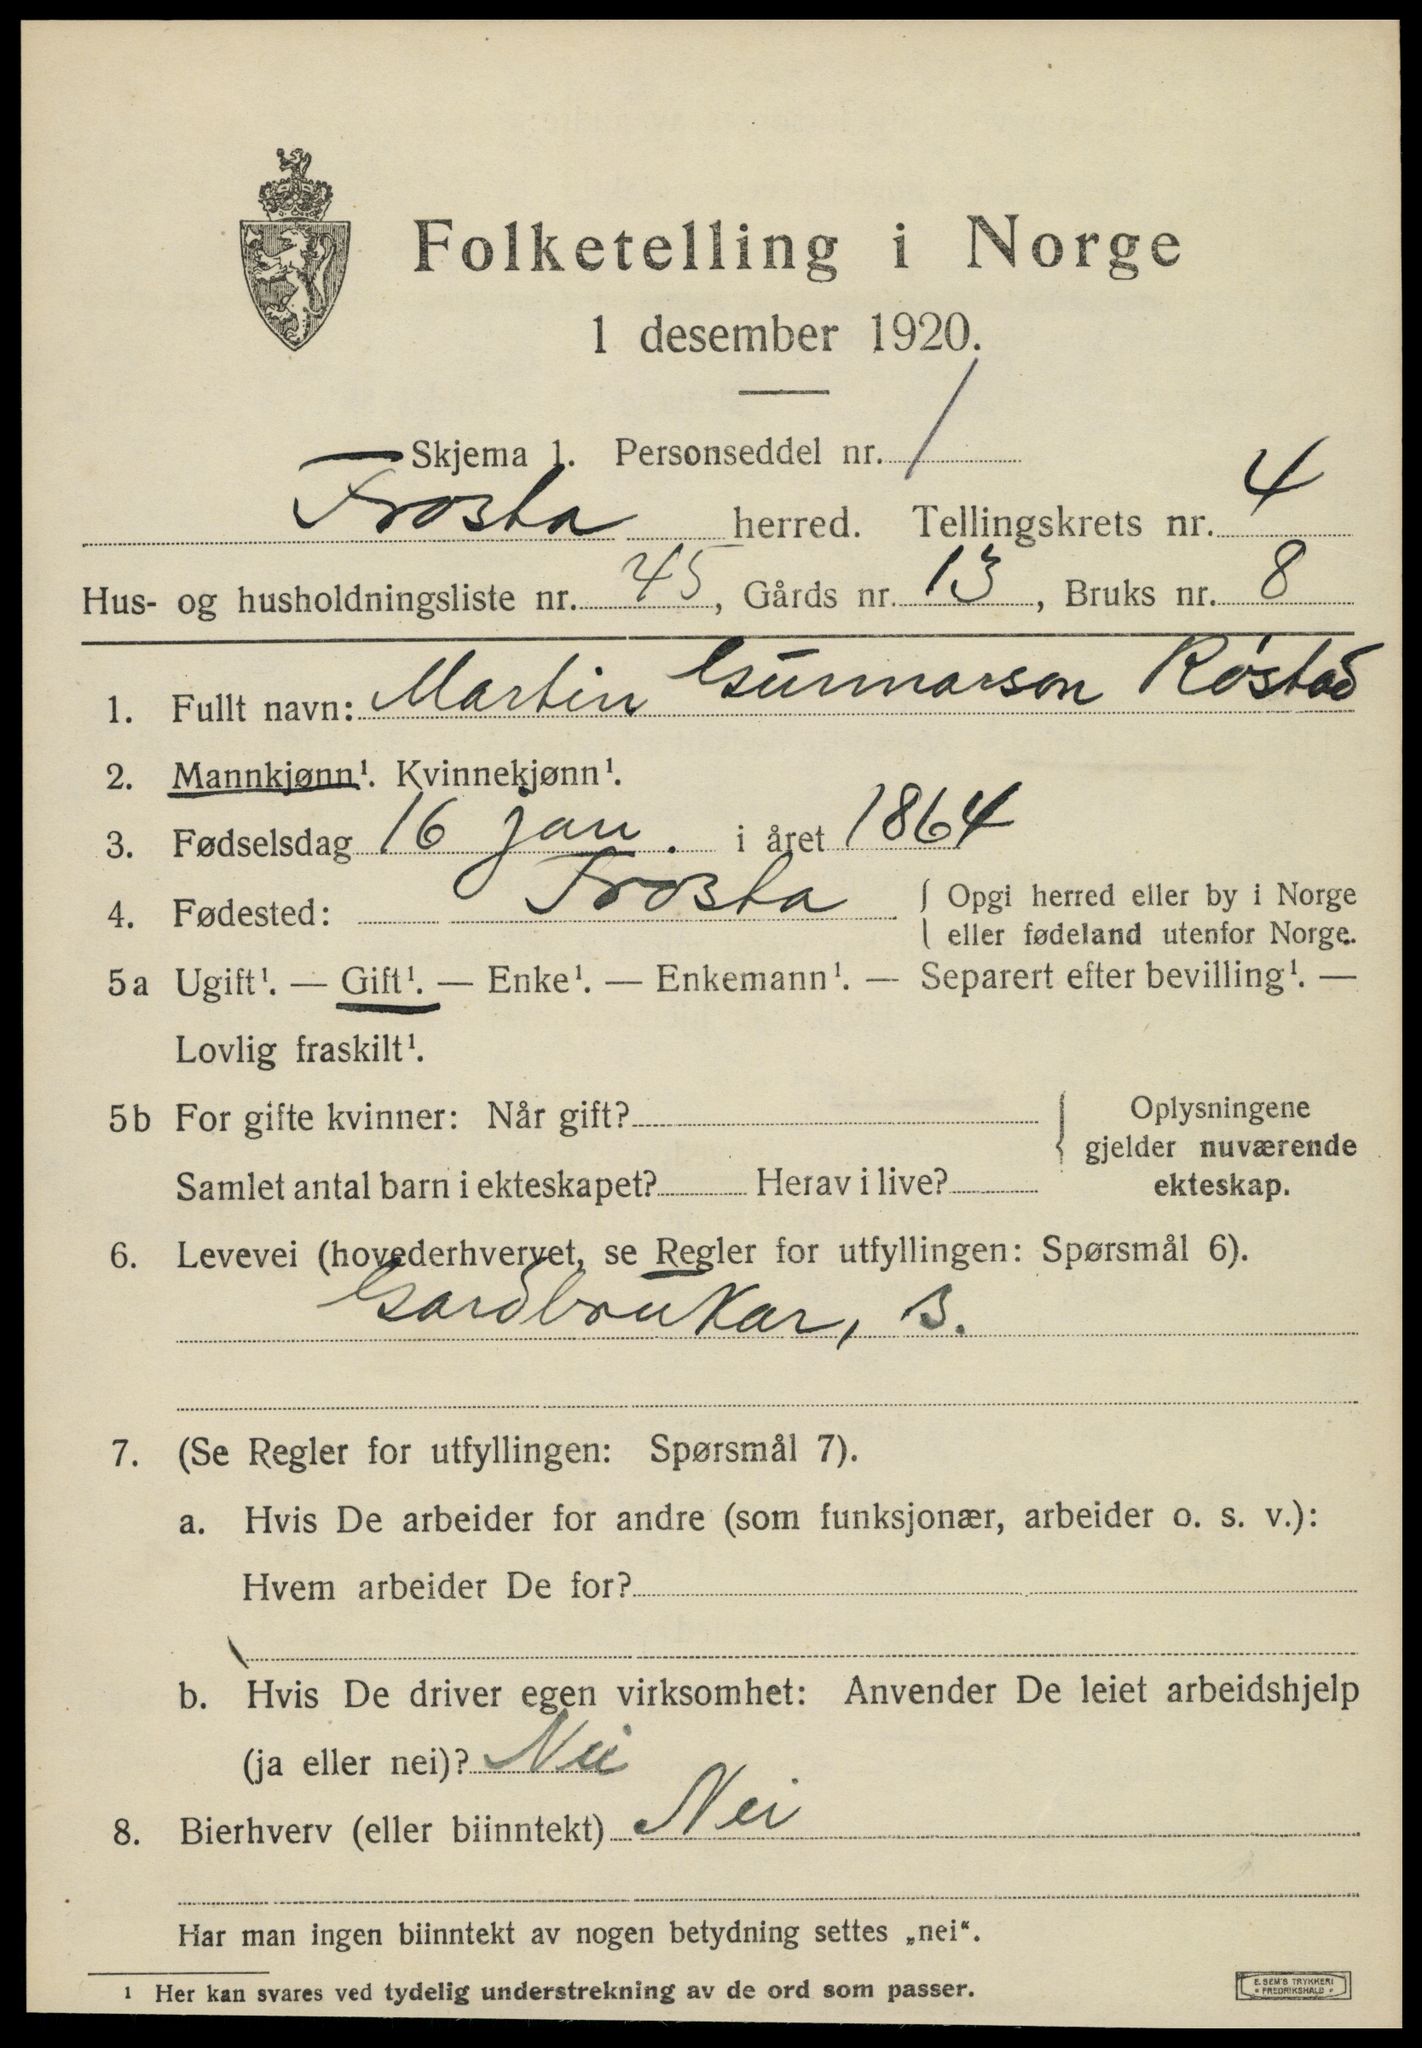 Folketelling i Norge
1 desember 1920.
Skjema 1. Personseddel nr. 1
Frosta herred. Tellingskrets nr. 4
Hus- og husholdningsliste nr. 45, Gårds nr. 13, Bruks nr. 8
1. Fullt navn: Martin Gunnarson Røstad
2. Mannkjønn¹. Kvinnekjønn¹.
3. Fødselsdag 16 jan. i året 1864
4. Fødested: Frosta { Opgi herred eller by i Norge
eller fødeland utenfor Norge.
5a Ugift¹. — Gift¹. — Enke¹. — Enkemann¹. — Separert efter bevilling¹. —
Lovlig fraskilt¹.
5b For gifte kvinner: Når gift? { Oplysningene
gjelder nuværende
Samlet antal barn i ekteskapet? Herav i live? ekteskap.
6. Levevei (hovederhvervet, se Regler for utfyllingen: Spørsmål 6).
Gardbrukar, S.
7. (Se Regler for utfyllingen: Spørsmål 7).
a. Hvis De arbeider for andre (som funksjonær, arbeider o. s. v.):
Hvem arbeider De for?
b. Hvis De driver egen virksomhet: Anvender De leiet arbeidshjelp
(ja eller nei)? Nei
8. Bierhverv (eller biinntekt) Nei
Har man ingen biinntekt av nogen betydning settes „nei“.
¹ Her kan svares ved tydelig understrekning av de ord som passer.
E. SEM'S TRYKKERI
* FREDRIKSHALD *